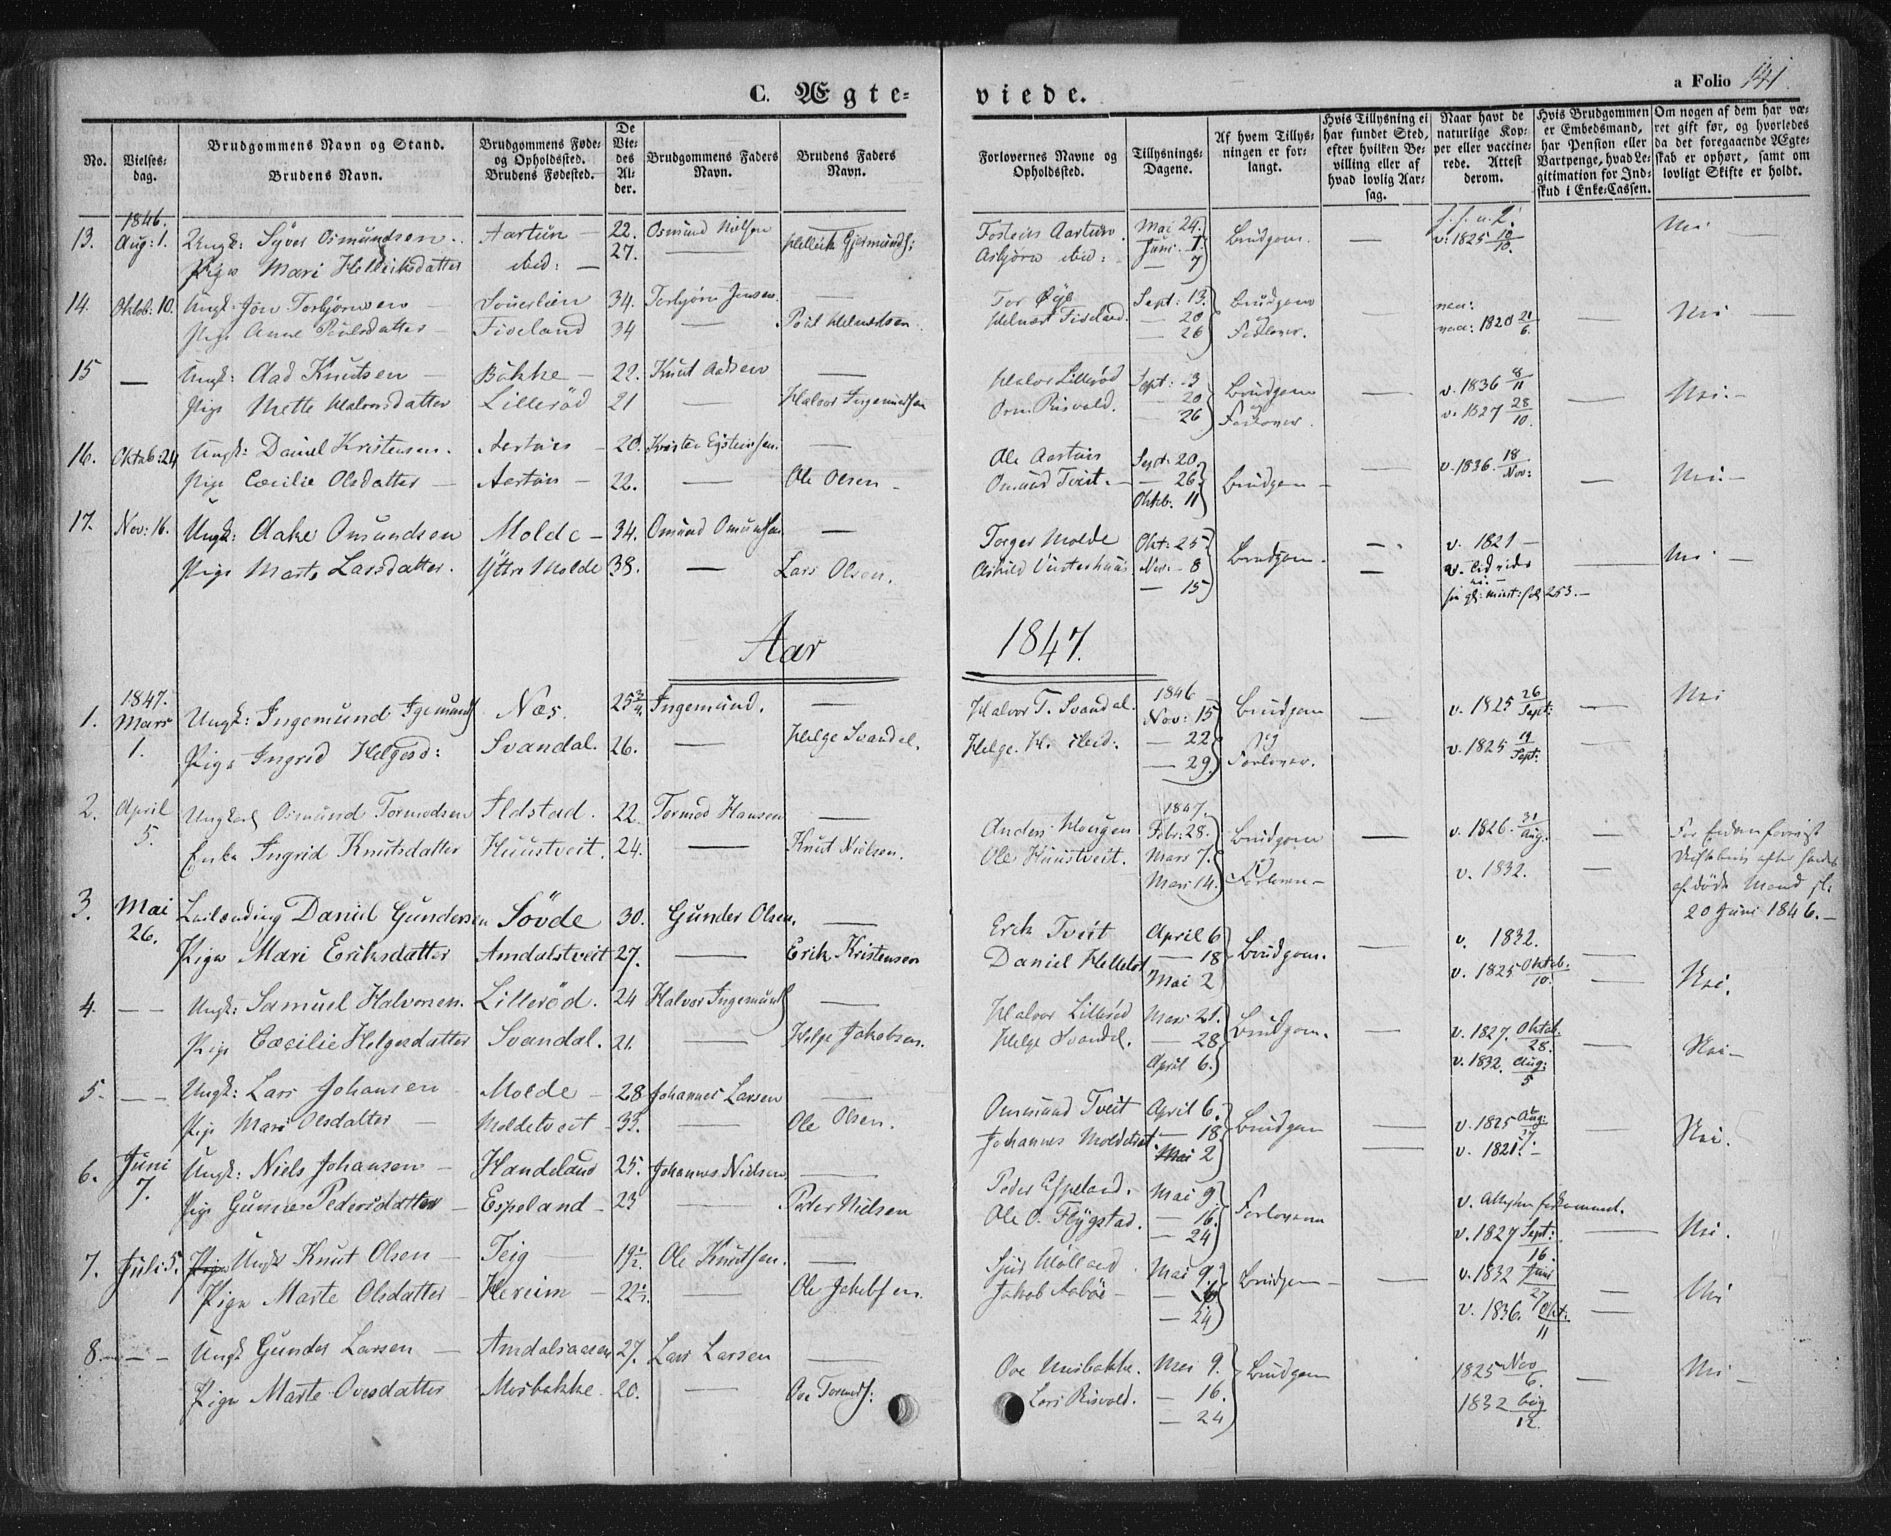 C. Ægte-
viede.
a Folio 141.
No.
Vielses-dag.
Brudgommens Navn og Stand.
Brudens Navn.
Brudgommens Føde- og Opholdssted.
Brudens Fødested.
De Viedes Alder.
Brudgommens Faders Navn.
Brudens Faders Navn.
Forlovernes Navne og Opholdssted.
Tillysnings-Dagene.
Af hvem Tillysningen er forlangt.
Hvis Tillysning ei har fundet Sted, efter hvilken Bevilling eller af hvad lovlig Aarsag.
Naar havt de naturlige Kopper eller vaccinerede. Attest derom.
Hvis Brudgommen er Embedsmand, har Pension eller Vartpenge, hvad Legitimation for Indskud i Enke-Cassen.
Om nogen af dem har været gift før, og hvorledes da det foregaaende Ægteskab er ophørt, samt om lovligt Skifte er holdt.
1846.
13. Aug: 1. Ungk: Syver Osmundsen Aartun 22. Osmund Nilsen — Mai 24. Brudgom — v. 1825 Nei
Pige Mari Hellviksdatter ibid: 27. — Asbjørn ibid: Juni 1.
— 7
14. Oktob: 10. Ungk: Jon Torbjørnsen 34. Torbjørn Jensen — Tor Øye Sept: 13. Brudgom — Nei —
Pige Anne Poulsdatter Fiveland 34 — Poul Helmertsen Fiveland — 20 og naa: 1820 21/6
— 26 Forlover.
15 — Ungk: Aad Knutsen Bakke 22. Knut Aadsen — Halvor Lillerød Sept: 13 Brudgom — v. 1836 8/11 Nei.
Pige Mette Halvorsdatter Lillerød 21 — Halvor Ingemundsen Risvold. — 20 og v. 1827 28/10
— 26 Forlover.
16. Oktob: 24 Ungk: Daniel Kristensen. 20. — Ole Sept: 20. Brudgom — v. 1836. 18/Nov: Nei —
Pige Cæcilie Olsdatter 22. — Ole Olsen Osmund Tveit — 26.
Oktb. 11
17. Nov: 16. Ungk: Aake Omundsen Molde 34. Omund Omundsen — Torger Molde Okt: 25 Brudgom — v. 1821 — Nei —
Pige Marte Larsdatter. Yttre Molde 38. — Lars Olsen. Nov: 8
— 15 253.
Aar 1847.
1847. 1846
1. Mars 1. Ungk: Ingemund Næs. 25 Ingemund. — Halvor T. Svandal. Nov: 15 Brudgom — v. 1825 26/Sept: Nei
Pige Ingrid Helgesd: Svandal. 26. — Helge Svandal. Helge H. ibid: — 22 og v. 1825 Sept:
— 29. Forlover.
1847.
2. April 5. Ungkarl Osmund Tormodsen 22. Tormod Hansen — Anders Febr: 28. Brudgom — v. 1826. 31/Aug:
Enke Ingrid Knutsdatter Huustveit. 24. — Knut Nielsen. Ole Huustveit. Mars 7. og v. 1832.
Mars 14. Forlover
20 Juni 1846. —
3. Mai 26. Daniel Gundersen Søvde 30. Gunder Olsen. — Erik Tveit April 6 Brudgom. — v. 1832.
Pige Mari Eriksdatter Amdalstveit 27. — Erik Kristensen Daniel — 18 v. 1825 Oktob./10. Nei.
Mai 2
4. — Ungk: Samuel Halvorsen. Lillerød. 24 Halvor Ingemunds — Halvor Lillerød Mars 21. Brudgom. — v. 1827. Oktob./28. Nei —
Pige Cæcilie Helgesdatter Svandal. 21. — Helge Jakobsen. Helge Svandal. — 28 v. 1832. Aug:/5
April 6.
5. — Ungk: Lars Johansen Molde 28 Johannes Larsen — Tveit April 6. Brudgom — v. 1825 Aug: Nei.
Pige Mari Olsdatter Moldetveit 33. — Ole Olsen. Johannes — 18 v. 1821.
Mai 2
6. Juni 7. Ungk: Niels Johansen Handeland 25. Johannes Nielsen — Peder Espeland. Mai 9. Forloverne v.
Pige Pedersdatter Espeland 23 — Peder Nielsen Ole O. Flygstad. — 16. v. 1827 Sept:/16. — Nei.
— 24
7. Juli 5. Ungk Knut Olsen Teig 19½. Ole Knutsen. — Mai 9. Brudgom — v. 1832 Juni/27 Nei
Pige Marte Olsdatter Hereim 22 — Ole Jakobsen Jakob Aabøe v. 1836. Okt:/11
— 24
8. — Ungk Gunder Larsen Amdalsaasen 27. Lars Larsen — Ove Mosbakke. Mai 9. Brudgom 1825 Nov/6. Nei
Pige Marte Ovesdatter Mosbakke 20. — Ove Tormods: Lars Risvold. — 16. 1832 Aug/12.
— 24